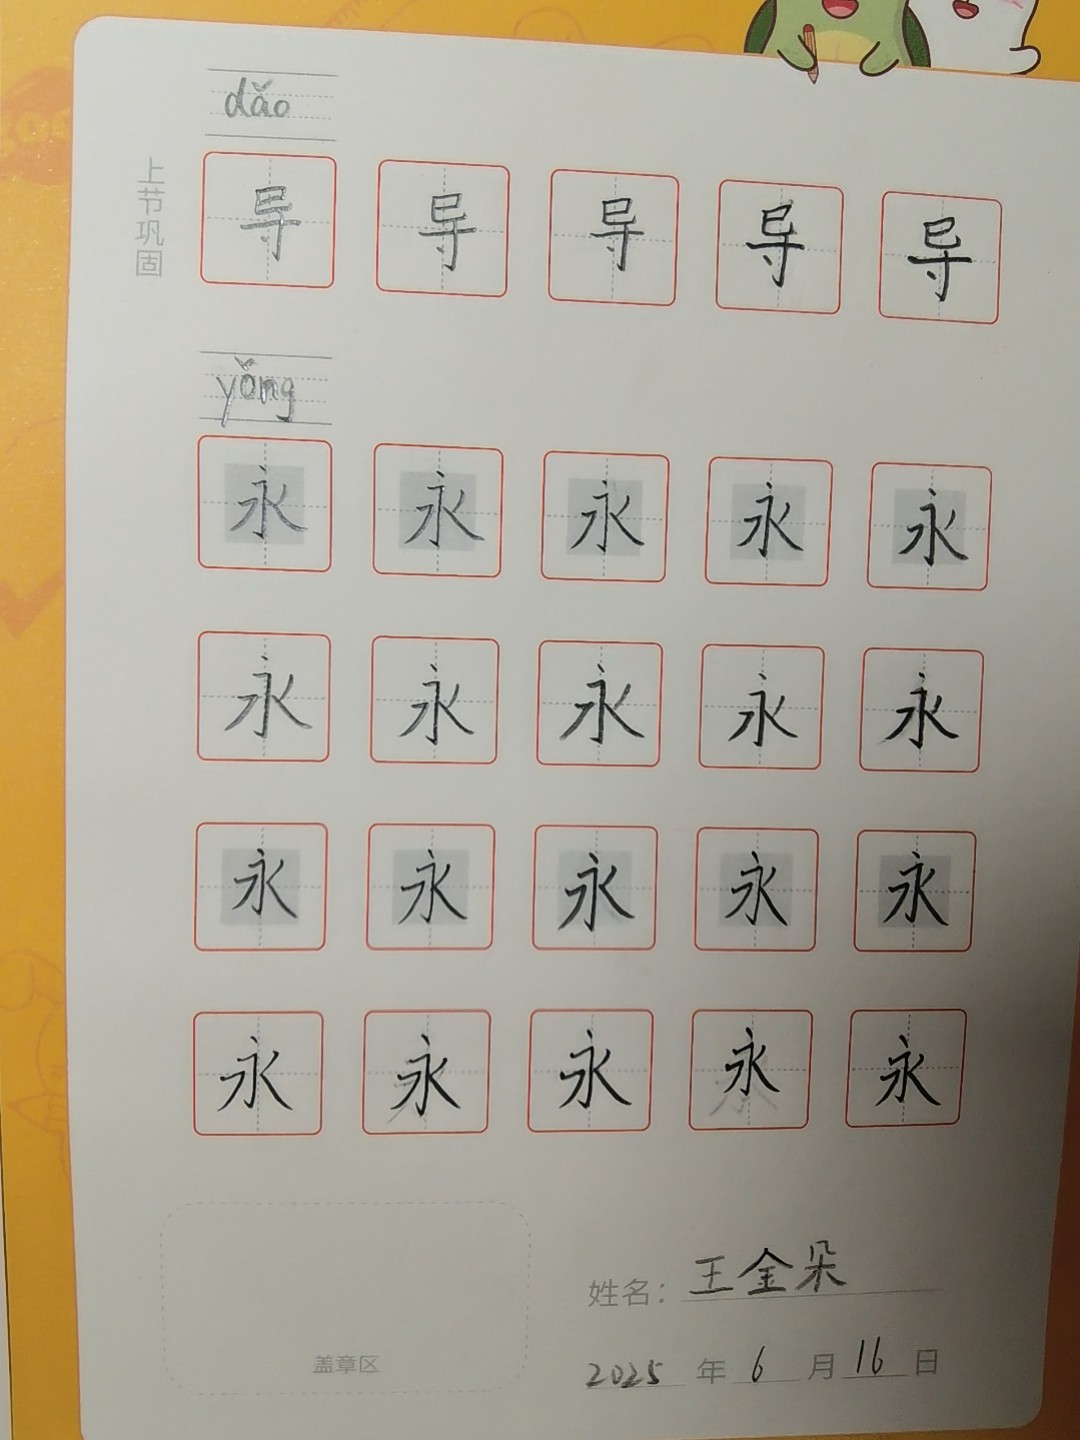 dǎo
上节巩固
导 导 导 导 导
yǒng
永 永 永 永 永
永 永 永 永 永
永 永 永 永 永
永 永 永 永 永
姓名：王金朵
盖章区
2025 年 6 月 16 日